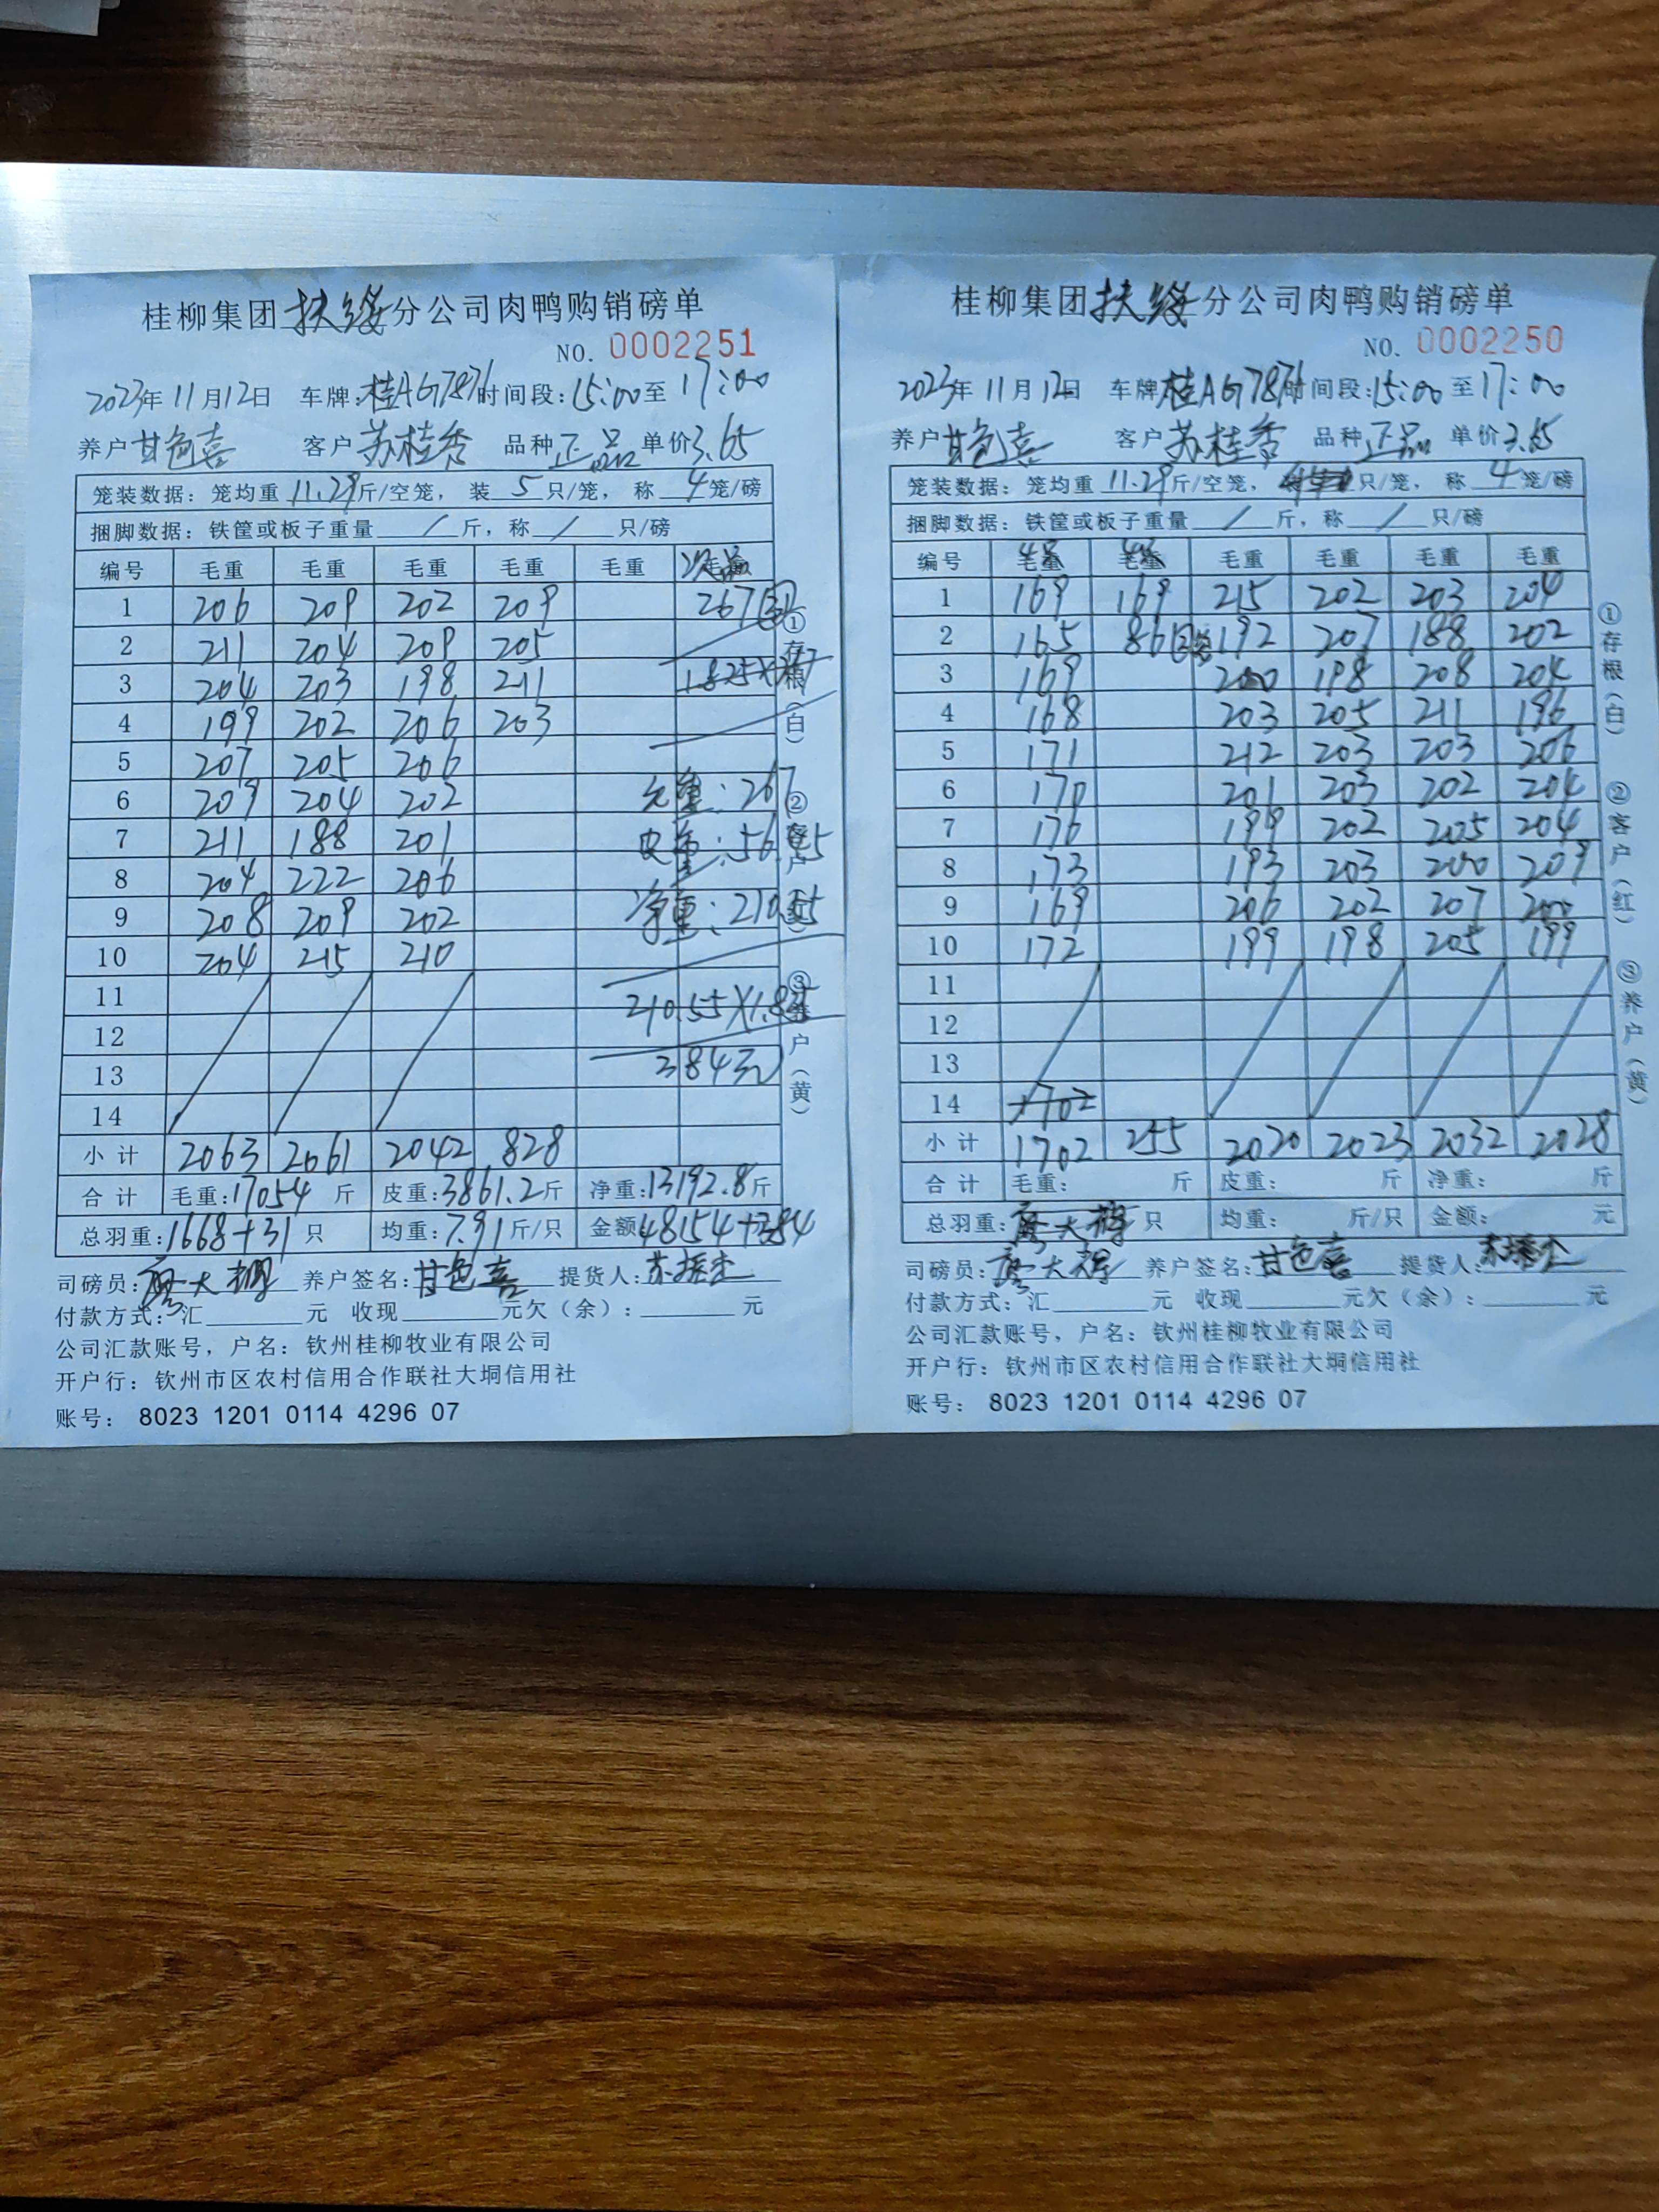 桂柳集团扶绥分公司肉鸭购销磅单
NO. 0002251
2023年11月12日 车牌:桂AG7876时间段:15:00至17:00
养户甘色喜 客户苏桂秀 品种正品单价3.65
笼装数据：笼均重11.29斤/空笼，装5只/笼，称4笼/磅
捆脚数据：铁筐或板子重量/斤，称/只/磅
编号 毛重 毛重 毛重 毛重 毛重 次品
1 206 209 202 209 267
2 211 204 209 205
3 204 203 198 211 1.825×267
4 199 202 206 203
5 207 205 206
6 209 204 202 毛重:267
7 211 188 201 皮重:56.45
8 204 222 206
9 208 209 202 净重:210.55
10 204 215 210
11 210.55×1.825
12
13 384元
14
小计 2063 2061 2042 828
合计 毛重:17054斤 皮重:3861.2斤 净重:13192.8斤
总羽重:1668+31只 均重:7.91斤/只 金额48154+384
司磅员:廖大樑 养户签名:甘色喜 提货人:苏
付款方式:汇 元 收现 元欠（余）: 元
公司汇款账号，户名：钦州桂柳牧业有限公司
开户行：钦州市区农村信用合作联社大垌信用社
账号： 8023 1201 0114 4296 07
①存根（白） ②客户（红） ③养户（黄）
桂柳集团扶绥分公司肉鸭购销磅单
NO. 0002250
2023年11月12日 车牌桂AG7876时间段:15:00至17:00
养户甘色喜 客户苏桂秀 品种正品 单价3.65
笼装数据：笼均重11.29斤/空笼，只/笼，称4笼/磅
捆脚数据：铁筐或板子重量/斤，称/只/磅
编号 毛重 毛重 毛重 毛重 毛重 毛重
1 169 169 215 202 203 204
2 165 86 192 207 188 202
3 169 200 198 208 204
4 168 203 205 211 196
5 171 212 203 203 206
6 170 201 203 202 204
7 176 199 202 205 204
8 173 193 203 200 209
9 169 206 202 207 200
10 172 199 198 205 199
11
12
13
14 1702
小计 1702 255 2020 2023 2032 2028
合计 毛重: 斤 皮重: 斤 净重: 斤
总羽重: 只 均重: 斤/只 金额: 元
司磅员:廖大樑 养户签名:甘色喜 提货人:苏
付款方式:汇 元 收现 元欠（余）: 元
公司汇款账号，户名：钦州桂柳牧业有限公司
开户行：钦州市区农村信用合作联社大垌信用社
账号： 8023 1201 0114 4296 07
①存根（白） ②客户（红） ③养户（黄）